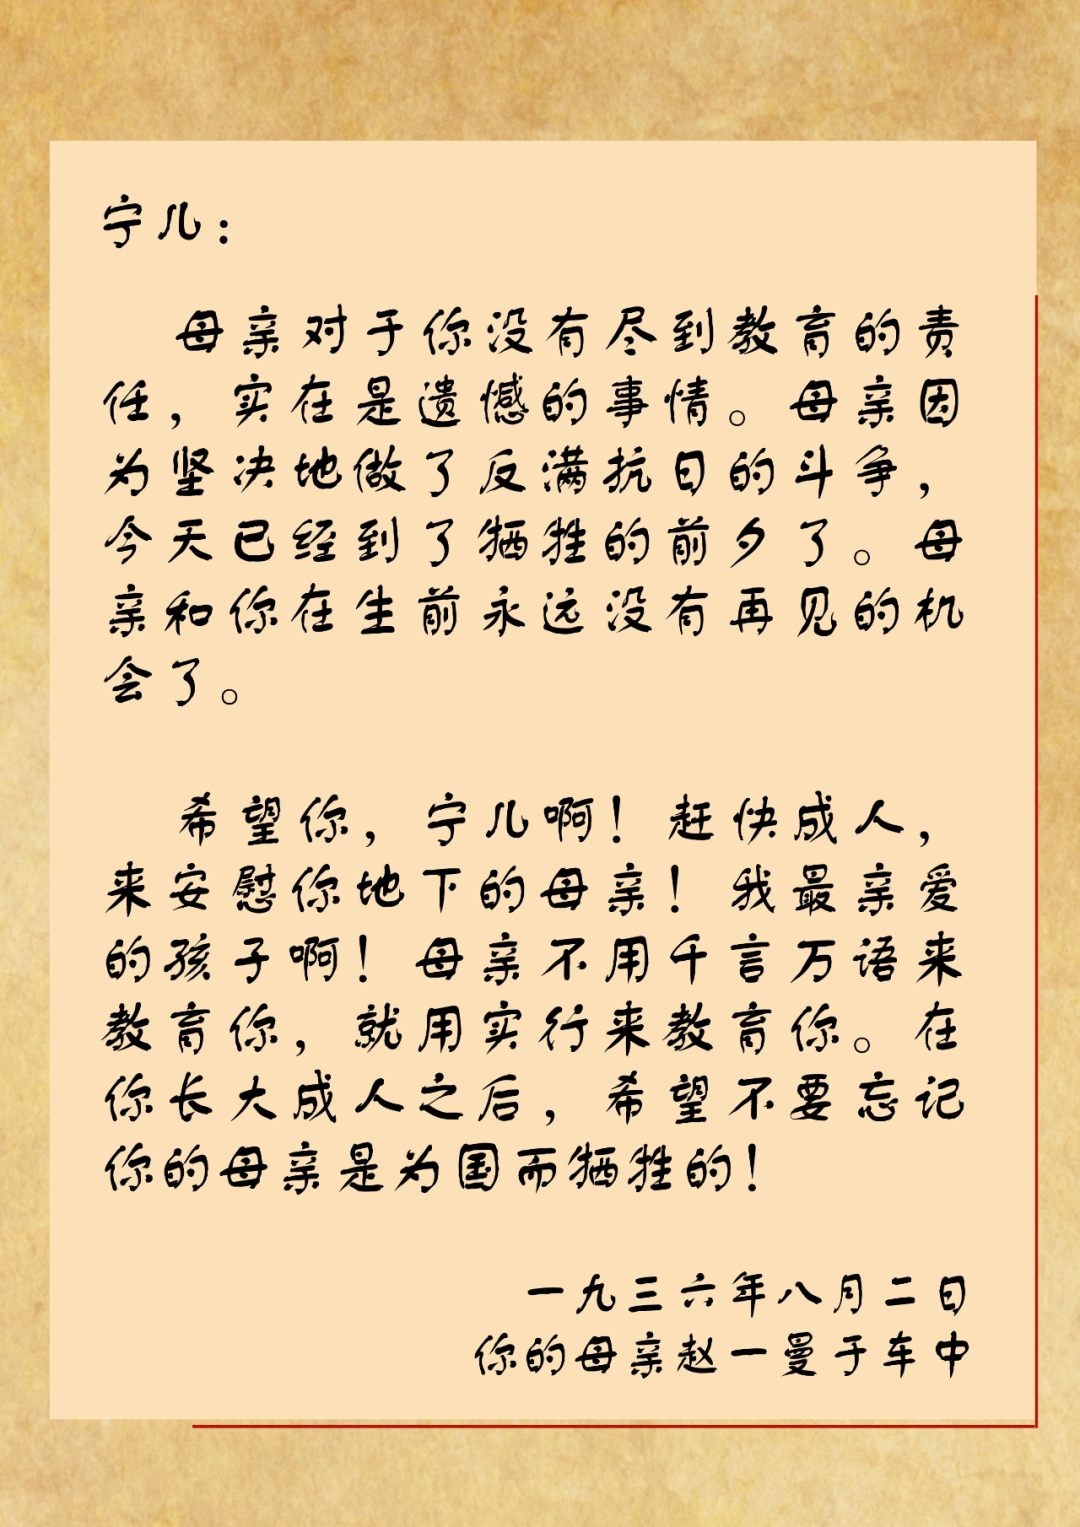 宁儿：
母亲对于你没有尽到教育的责
任，实在是遗憾的事情。母亲因
为坚决地做了反满抗日的斗争，
今天已经到了牺牲的前夕了。母
亲和你在生前永远没有再见的机
会了。
希望你，宁儿啊！赶快成人，
来安慰你地下的母亲！我最亲爱
的孩子啊！母亲不用千言万语来
教育你，就用实行来教育你。在
你长大成人之后，希望不要忘记
你的母亲是为国而牺牲的！
一九三六年八月二日
你的母亲赵一曼于车中